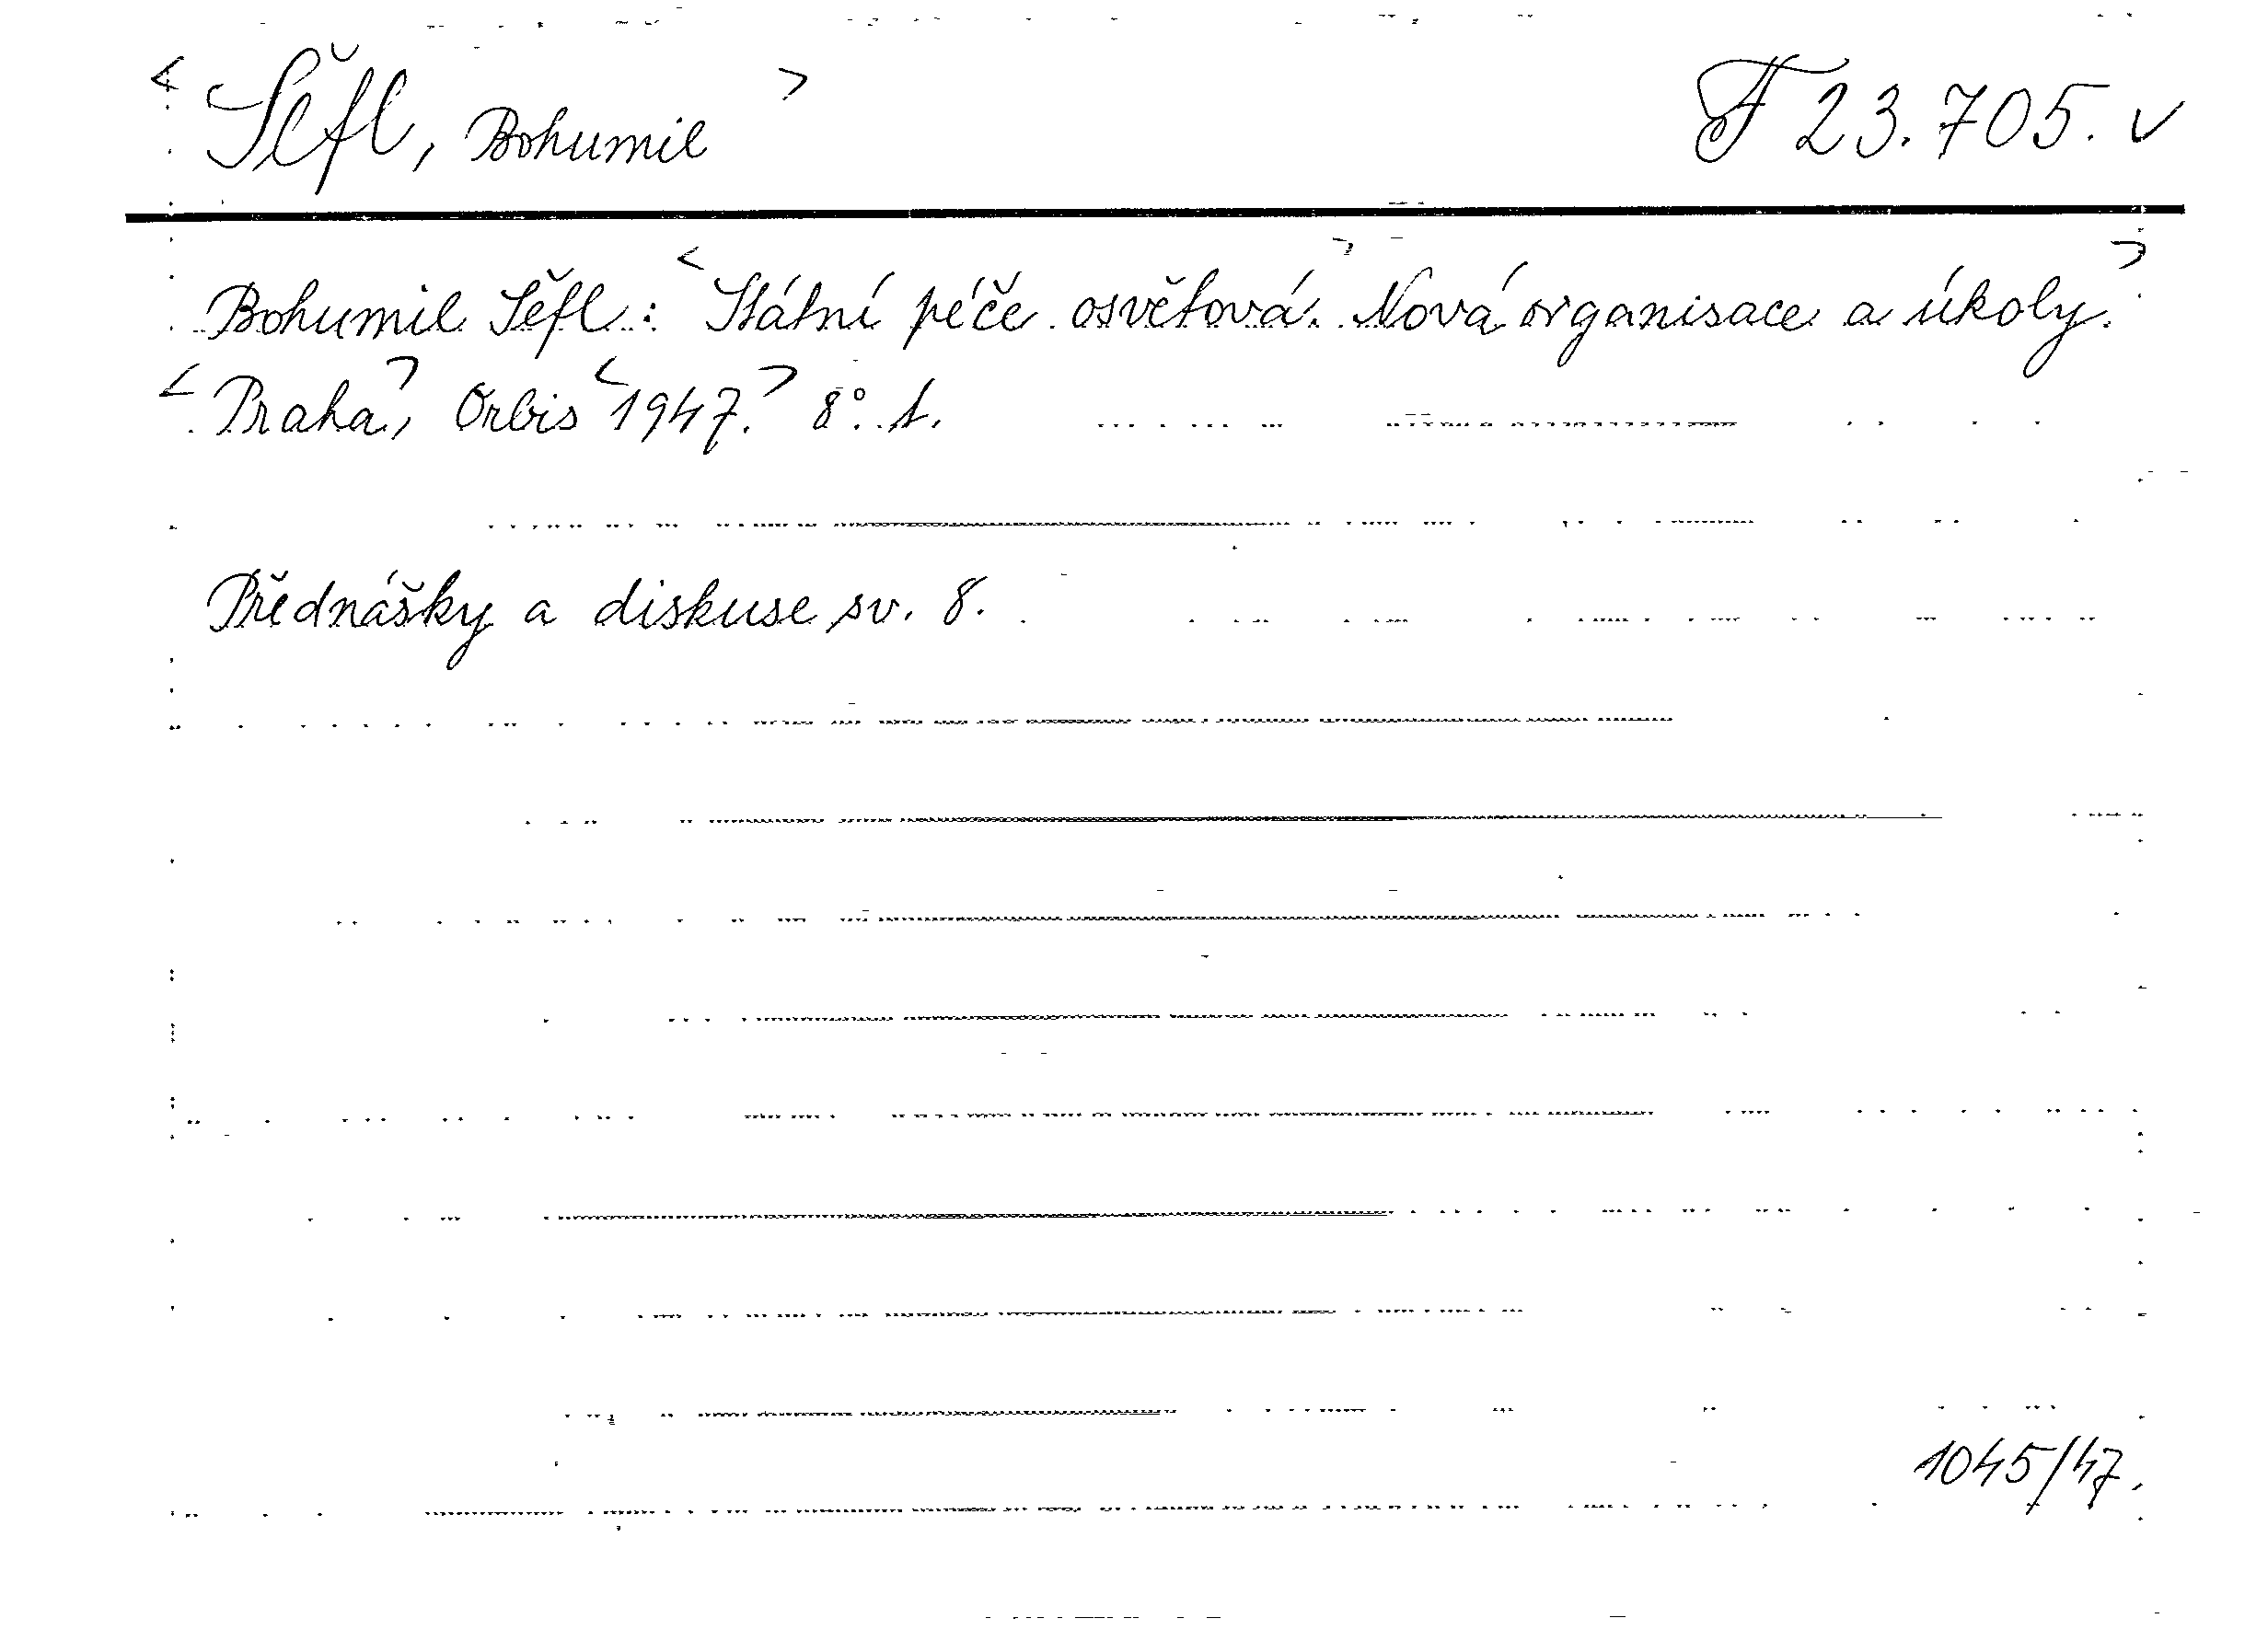 <Šéfl, Bohumil> F 23.705. v
Bohumil Šéfl: <Státní péče osvětová.> Nová organisace a úkoly.>
<Praha>, Orbis <1947.> 8°. 1.
Přednášky a diskuse sv. 8.
1045/47.